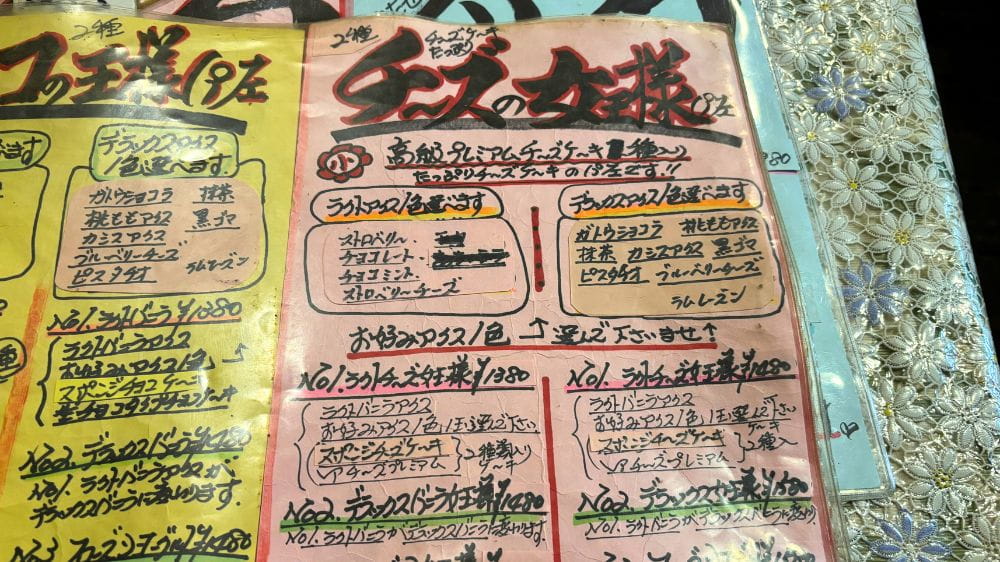 2種
コの王様パ左
デラックスアイス
1色選べます
ガトウショコラ 抹茶
桃ももアイス 黒ゴマ
カシスアイス
ブルーベリーチーズ
ピスタチオ ラムレーズン
No1.ラクトバニラ¥1380
ラクトバニラアイス
お好みアイス1色
スポンジチョコケーキ
No2.デラックスバニラ¥1480
No1.ラクトバニラアイスが
デラックスバニラに変ります
2種
チーズケーキ
たっぷり
チーズの女王様パ左
小
高級プレミアムチーズケーキ 種入り
たっぷりチーズケーキのパ左です!!
ラクトアイス1色選べます
ストロベリー
チョコレート
チョコミント
ストロベリーチーズ
デラックスアイス1色選べます
ガトウショコラ 桃ももアイス
抹茶 カシスアイス 黒ゴマ
ピスタチオ ブルーベリーチーズ
ラムレーズン
お好みアイス1色 ↑ 選んで下さいませ↑
No1.ラクトチーズ女王様¥1380
ラクトバニラアイス
お好みアイス1色玉選んで下さい
スポンジチーズケーキ
レアチーズプレミアム
2種入り
ケーキ
No2.デラックスバニラ女王様¥1480
No1.ラクトバニラがデラックスバニラに変ります
No1.ラクトチーズ女王様¥1480
ラクトバニラアイス
お好みアイス1色玉選んで下さい
スポンジチーズケーキ
レアチーズプレミアム
ケーキ
2種入
No2.デラックス女王様¥1580
No1.ラクトバニラがデラックスバニラに変り